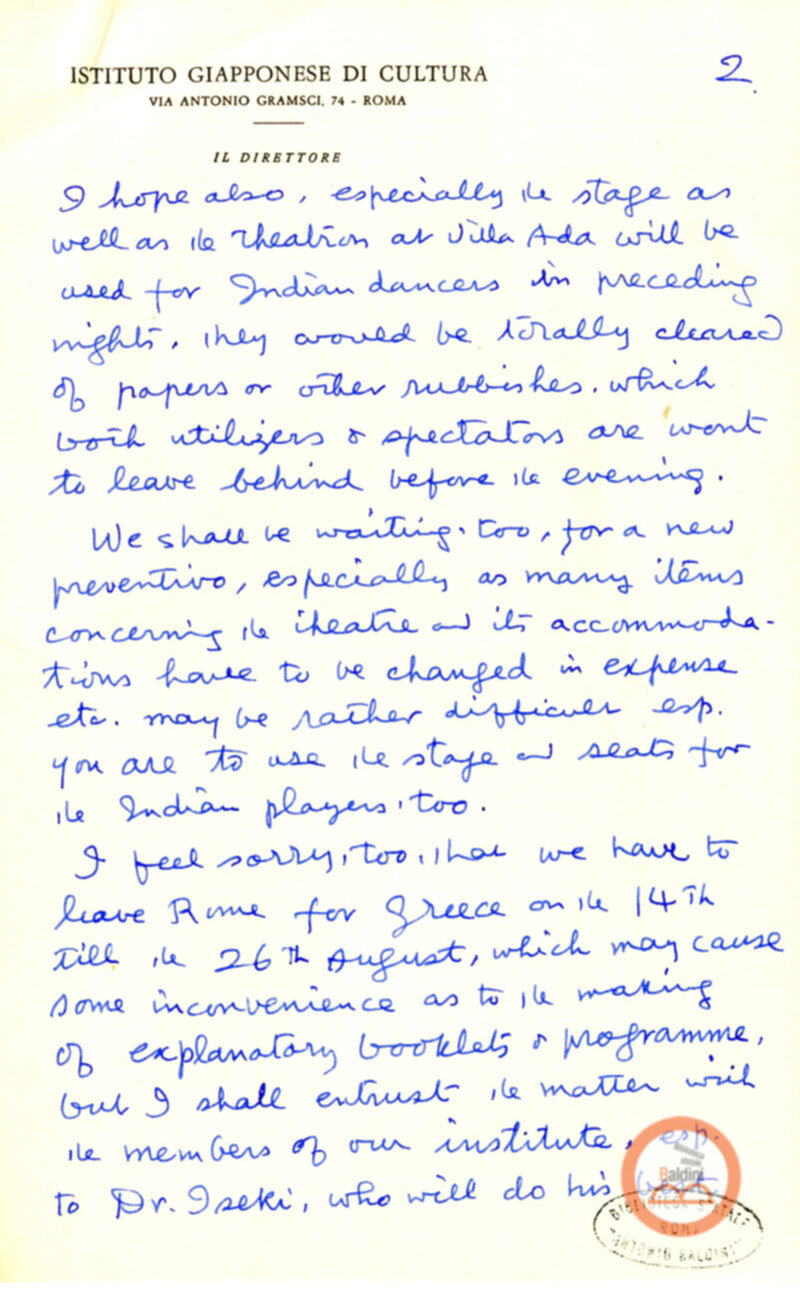 ISTITUTO GIAPPONESE DI CULTURA
VIA ANTONIO GRAMSCI, 74 - ROMA
IL DIRETTORE
2.
I hope also, especially the stage as
well as the theatron at Villa Ada will be
used for Indian dancers in preceding
nights, they would be totally cleared
of papers or other rubbishes, which
both utilizers & spectators are wont
to leave behind before the evening.
We shall be waiting, too, for a new
preventivo, especially as many items
concerning the theatre and its accommoda-
tions have to be changed in expense
etc. may be rather difficult esp.
you are to use the stage and seats for
the Indian players, too.
I feel sorry, too, that we have to
leave Rome for Greece on the 14th
till the 26th August, which may cause
some inconvenience as to the making
of explanatory booklets & programme,
but I shall entrust the matter with
the members of our institute, esp.
to Dr. Iseki, who will do his best
Biblioteca
statale
Baldini
BIBLIOTECA STATALE
ROMA
"ANTONIO BALDINI"